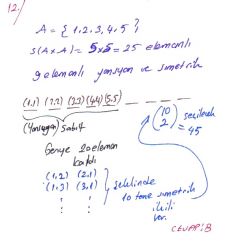 12./
A = {1,2,3,4,5}
s(A×A) = 5×5 = 25 elemanlı
9 elemanlı yansıyan ve simetrik
(1,1) (2,2) (3,3) (4,4) (5,5)
(Yansıyan) Sabit
(10 2) seçilecek
= 45
Geriye 20 eleman
kaldı
(1,2) (2,1)
(1,3) (3,1)
şeklinde
10 tane simetrik
ikili
var.
CEVAP: B